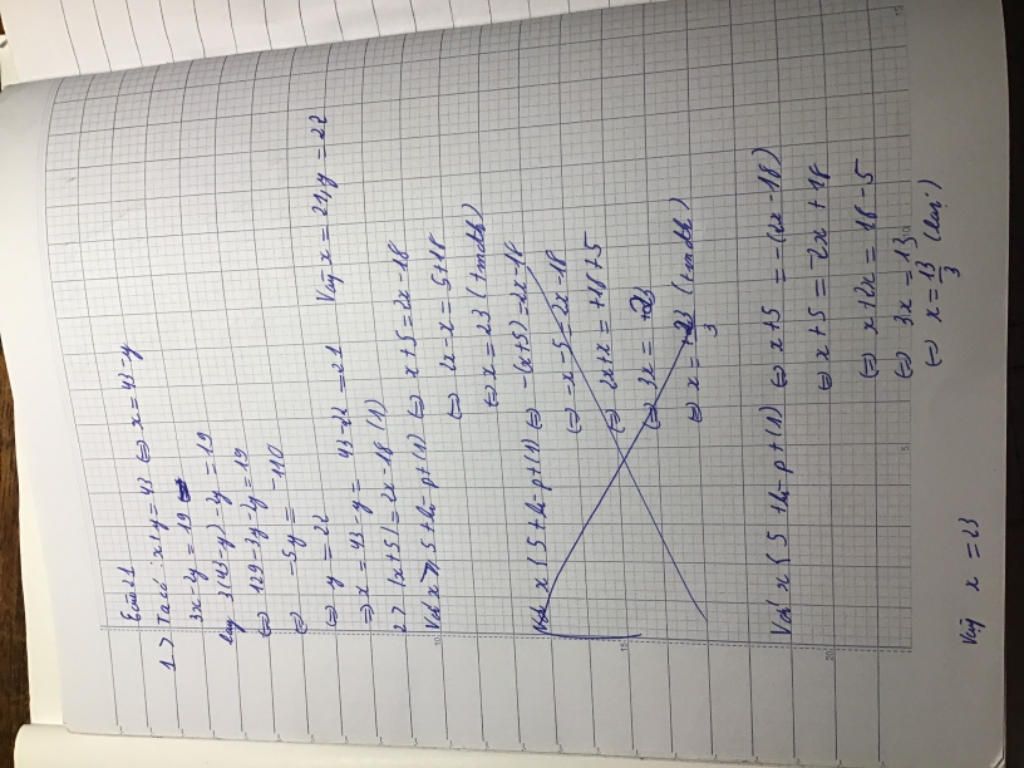 1.> Ta có : x + y = 43 ⇔ x = 43 - y
3x - 2y = 19
3(43 - y) - 2y = 19
⇔ 129 - 3y - 2y = 19
⇔ -5y = -110
⇔ y = 22
⇒ x = 43 - y = 43 - 22 = 21 Vậy x = 21, y = 22
2> |x + 5| = 2x - 18 (1)
Với x ≥ 5 (1) ⇔ x + 5 = 2x - 18
⇔ 2x - x = 5 + 18
⇔ x = 23 (tmđk)
x < 5 (1) ⇔ -(x + 5) = 2x - 18
⇔ -x - 5 = 2x - 18
⇔ 2x + x = +18 + 5
⇔ 3x = 23
⇔ x = 23/3 (tmđk)
Với x < 5 (1) ⇔ x + 5 = -(2x - 18)
⇔ x + 5 = -2x + 18
⇔ x + 2x = 18 - 5
⇔ 3x = 13
⇔ x = 13/3 (loại)
Vậy x = 23